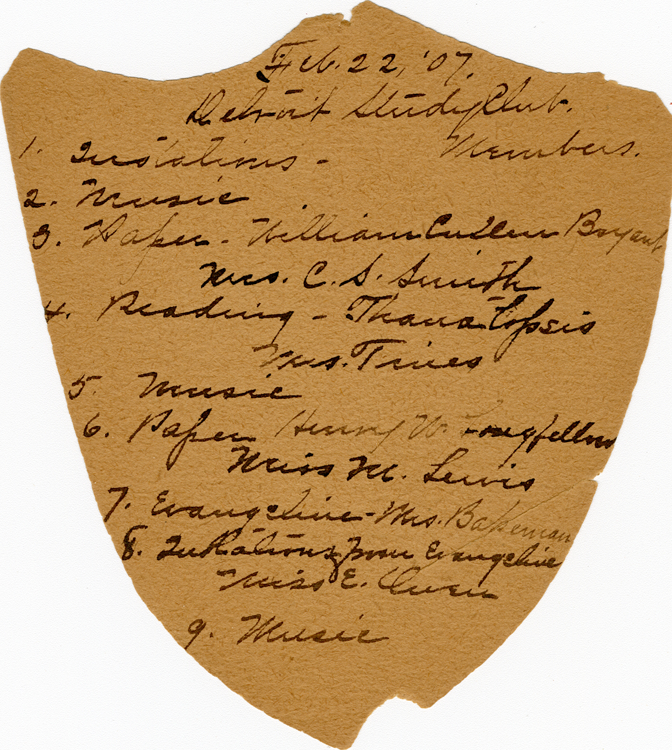 Feb. 22, '07.
Detroit Study Club.
1. Quotations - Members.
2. Music
3. Paper - William Cullen Bryant
Mrs. C. S. Smith
4. Reading - Thanatopsis
Mrs.
5. Music
6. Paper Henry W. Longfellow
Miss M. Lewis
7. Evangeline - Mrs. Bakeman
8. Quotations from Evangeline
Miss E. Owen
9. Music